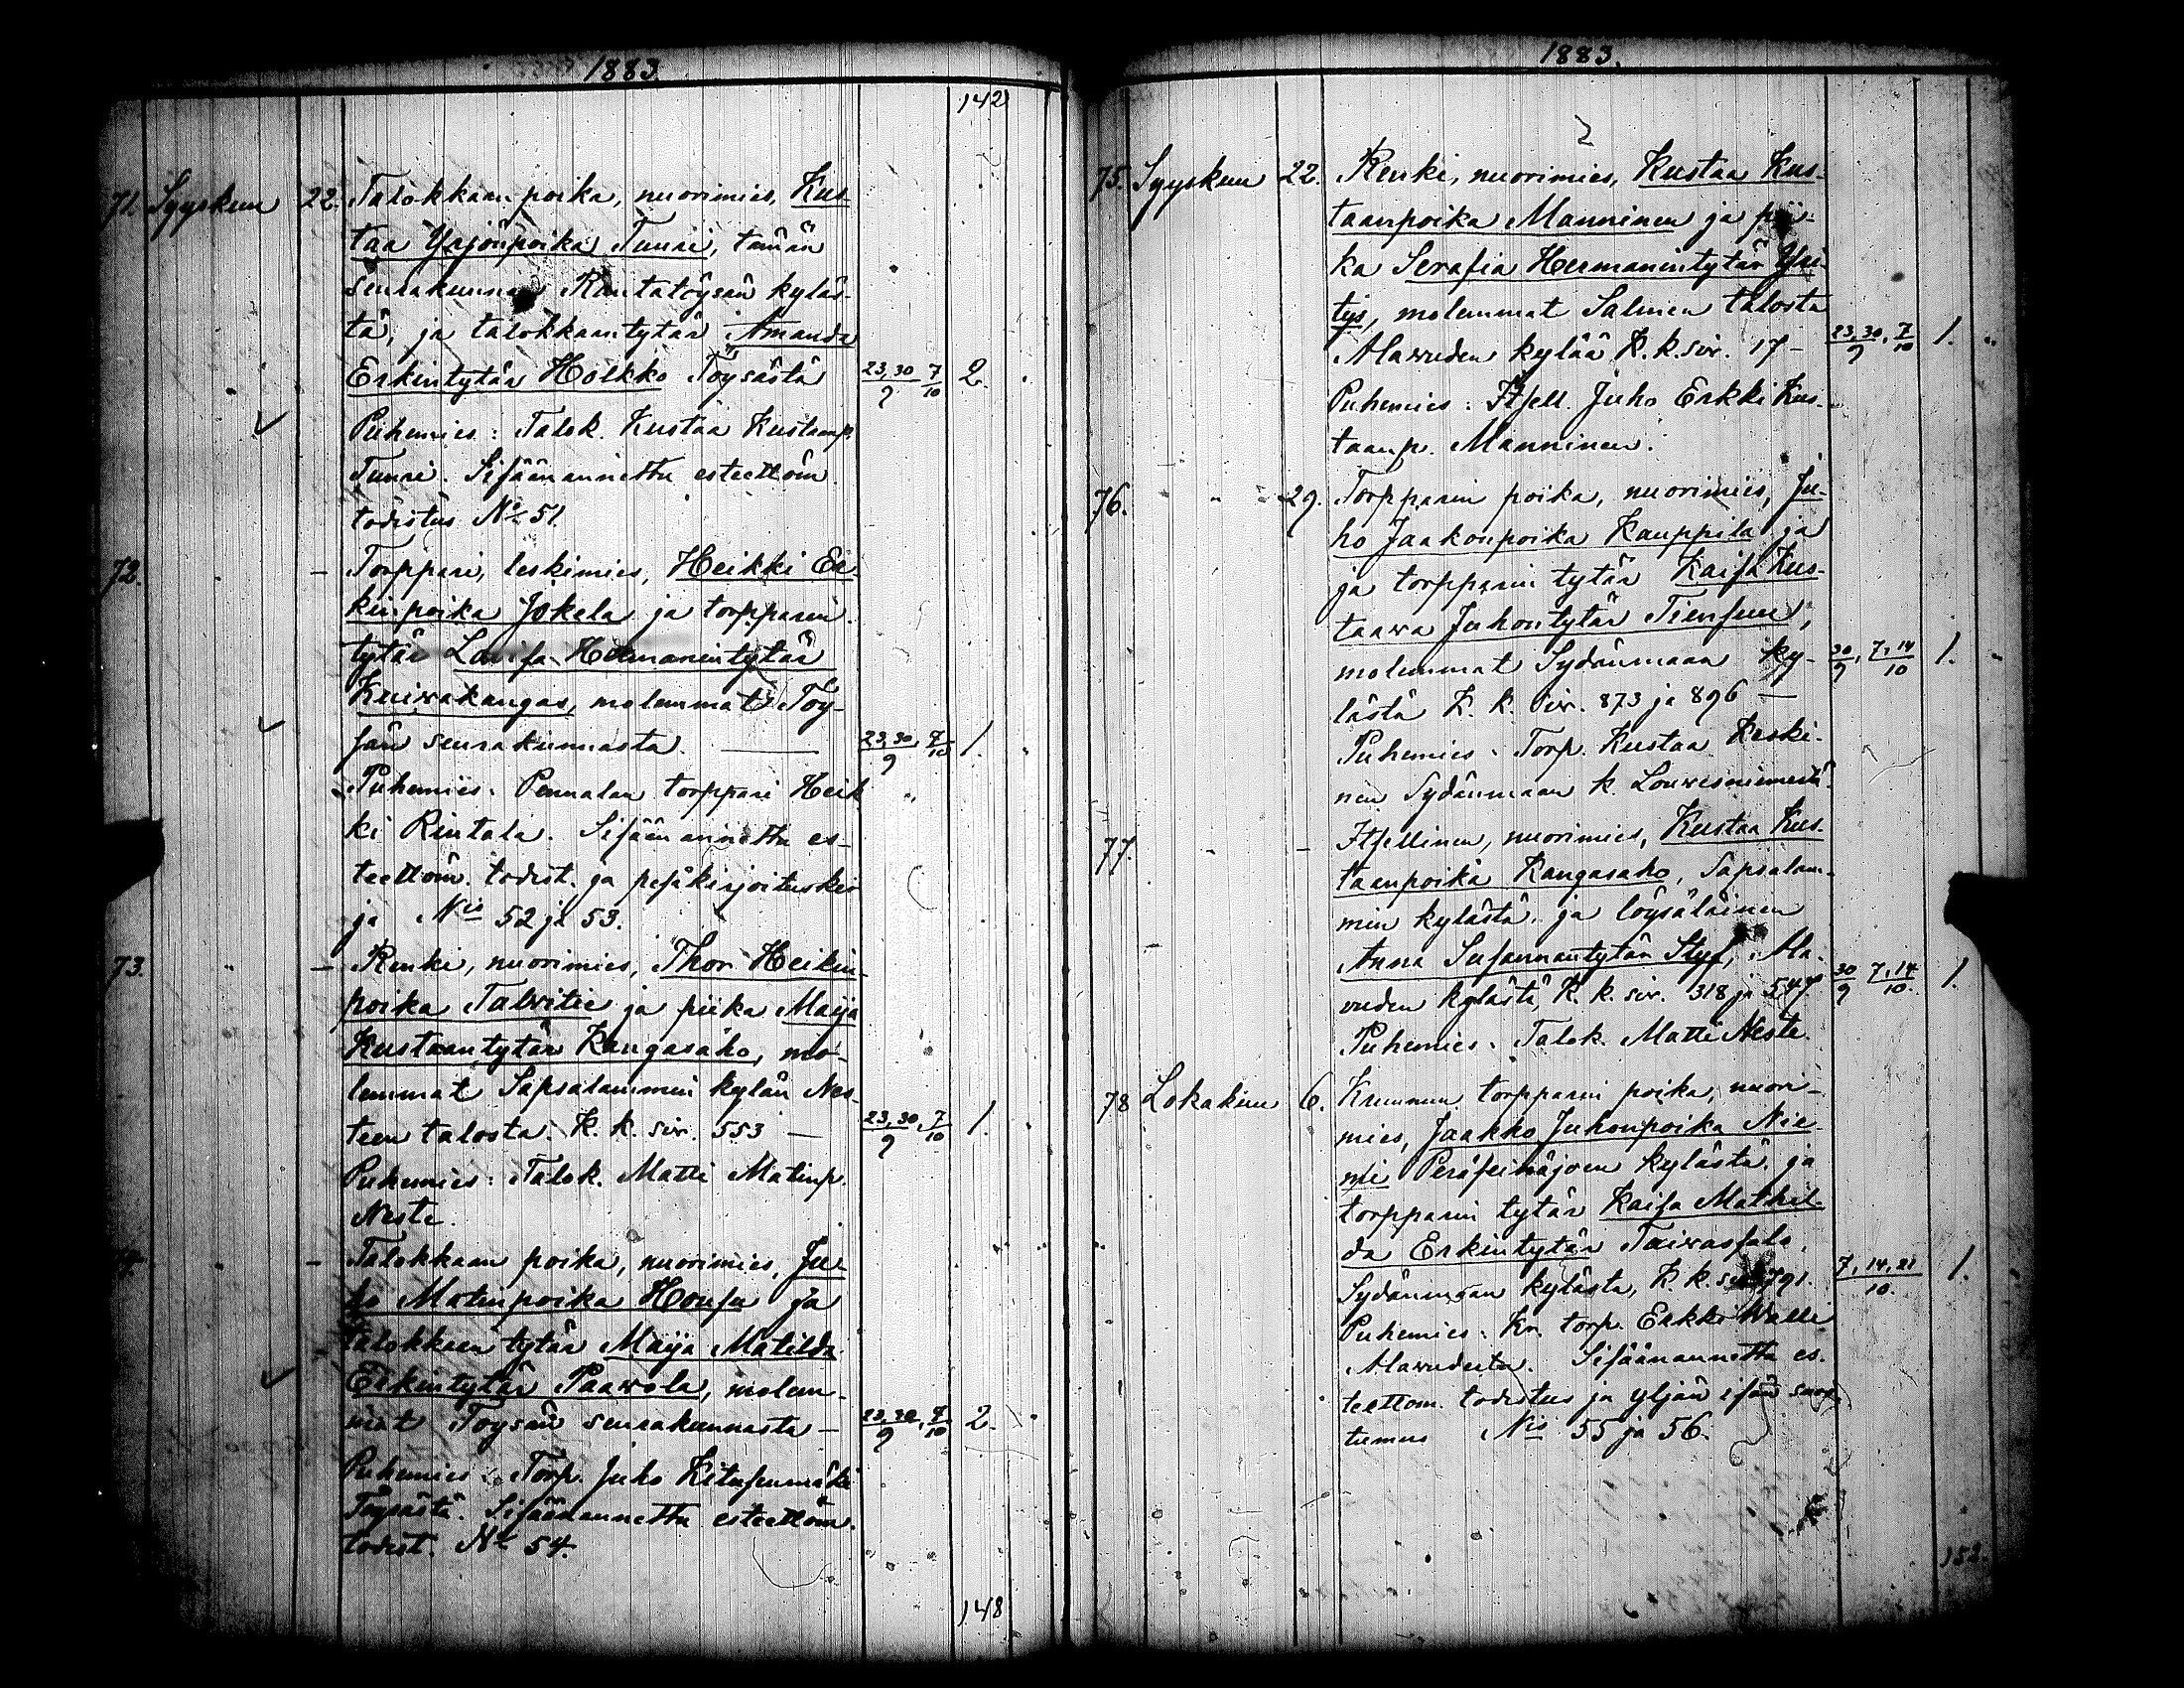 1883.
142
71. Syyskuu 22. Talokkaan poika, nuorimies, Kus-
taa Yrjönpoika Tuuri, tämän
seurakunnan Rantatöysän kyläs-
tä, ja talokkaan tytär Amanda
Erkintytär Holkko Töysästä 23,30/9 7/10 2.
Puhemies: Talok. Kustaa Kustanp.
Tuuri. Sisäänannettu esteettöm.
todistus No 51.
72. " – Torppari, leskimies, Heikki Er-
kinpoika Jokela ja torpparin
tytär Lovisa Hermanintytär
Kuivakangas, molemmat Töy-
sän seurakunnasta. — 23,30/9, 7/10 1.
Puhemies: Pennalan torppari Heik
ki Rintala. Sisäänannettu es-
teettöm. todist. ja pesäkirjoituskir
ja Nis 52 ja 53.
73. " – Renki, nuorimies, Thor Heikin-
poika Talvitie ja piika Maija
Kustaantytär Kangasaho, mo-
lemmat Sapsalammin kylän Nes-
teen talosta. K. k. siv. 553 — 23,30/9, 7/10 1.
Puhemies: Talok. Matti Matinp.
Neste.
74. – Talokkaan poika, nuorimies, Ju-
ho Matinpoika Honsu ja
talokkaan tytär Maija Matilda
Erkintytär Paavola, molem-
mat Töysän seurakunnasta – 23,30/9, 7/10 2.
Puhemies: Torp. Juho Kitupunmäki
Töysästä. Sisäänannettu esteettöm.
todist. No 54.
148
1883.
75. Syyskuu 22. Renki, nuorimies, Kustaa Kus-
taanpoika Manninen ja pii-
ka Serafia Hermanintytär Yli-
tys, molemmat Salmen talosta
Alavuden kylää K. k. siv. 17 – 23,30/9, 7/10 1. "
Puhemies: Itsell. Juho Erkki Kus-
taanp. Manninen.
76. " 29. Torpparin poika, nuorimies, Ju-
ho Jaakonpoika Kauppila ja
ja torpparin tytär Kaisa Kus-
taava Juhontytär Tiensuu,
molemmat Sydänmaan ky- 30/9, 7,14/10 1. "
lästä K. k. siv. 873 ja 896 —
Puhemies: Torp. Kustaa Keski-
nen Sydänmaan k. Louvesniemestä.
77. " – Itsellinen, nuorimies, Kustaa Kus-
taanpoika Kangasaho, Sapsalam-
min kylästä, ja löysäläinen
Anna Susannantytär Styf, Ala-
vuden kylästä, K. k. siv. 318 ja 547. 30/9 7,14/10. 1.
Puhemies: Talok. Matti Neste.
78 Lokakuu 6. Kruunun torpparin poika, nuori-
mies, Jaakko Juhonpoika Nie-
mi Peräseinäjoen kylästä ja
torpparin tytär Kaisa Mathil-
da Erkintytär Taivassalo,
Sydänmaan kylästä, K. k. siv. 791. 7,14,21/10. 1.
Puhemies: Kr. torp. Erkki Walli
Alavudesta. Sisäänannettu es-
teettom. todistus ja yljän isän suos-
tumus Nis 55 ja 56.
152.